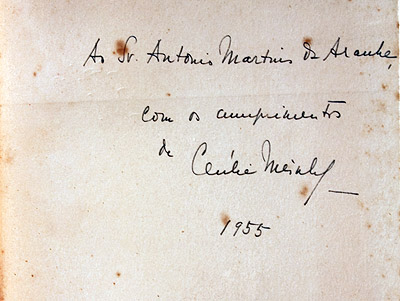 Ao Sr. Antonio Martins de Aranha,
com os cumprimentos
de Cecília Meireles
1955